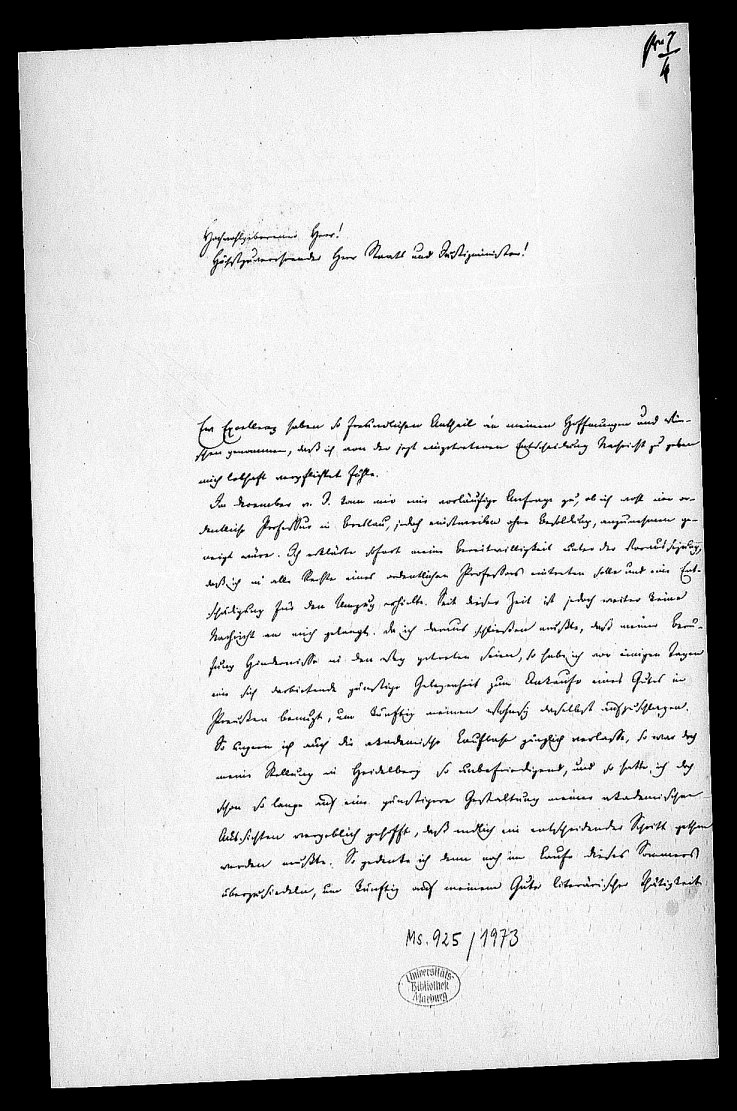 pr 7/4
Hochwohlgeborener Herr!
Höchstzuverehrender Herr Staats und Justizminister!
Ew Excellenz haben so freundlichen Antheil an meinen Hoffnungen und Wün-
schen genommen, daß ich von der jetzt eingetretenen Entscheidung Nachricht zu geben
mich lebhaft verpflichtet fühle.
Im December v. J. kam mir eine vorläufige Anfrage zu, ob ich wohl eine or-
dentliche Professur in Breslau, jedoch einstweilen ohne Besoldung, anzunehmen ge-
neigt wäre. Ich erklärte sofort meine Bereitwilligkeit unter der Voraussetzung,
daß ich in alle Rechte eines ordentlichen Professors eintreten solle und eine Ent-
schädigung für den Umzug erhielte. Seit dieser Zeit ist jedoch weiter keine
Nachricht an mich gelangt. Da ich daraus schließen mußte, daß meiner Beru-
fung Hindernisse in den Weg getreten seien, so habe ich vor einigen Tagen
eine sich darbietende günstige Gelegenheit zum Ankaufe eines Gutes in
Preußen benutzt, um künftig meinen Wohnsitz daselbst aufzuschlagen.
So ungern ich auch die akademische Laufbahn gänzlich verlasse, so war doch
meine Stellung in Heidelberg so unbefriedigend, und so hatte ich doch
schon so lange auf eine günstigere Gestaltung meiner akademischen
Aussichten vergeblich gehofft, daß endlich ein entscheidender Schritt gethan
werden mußte. So gedenke ich denn noch im Laufe dieses Sommers
überzusiedeln, um künftig auf meinem Gute literärischer Thätigkeit
Ms. 925/1973
Universitäts-
Bibliothek
Marburg